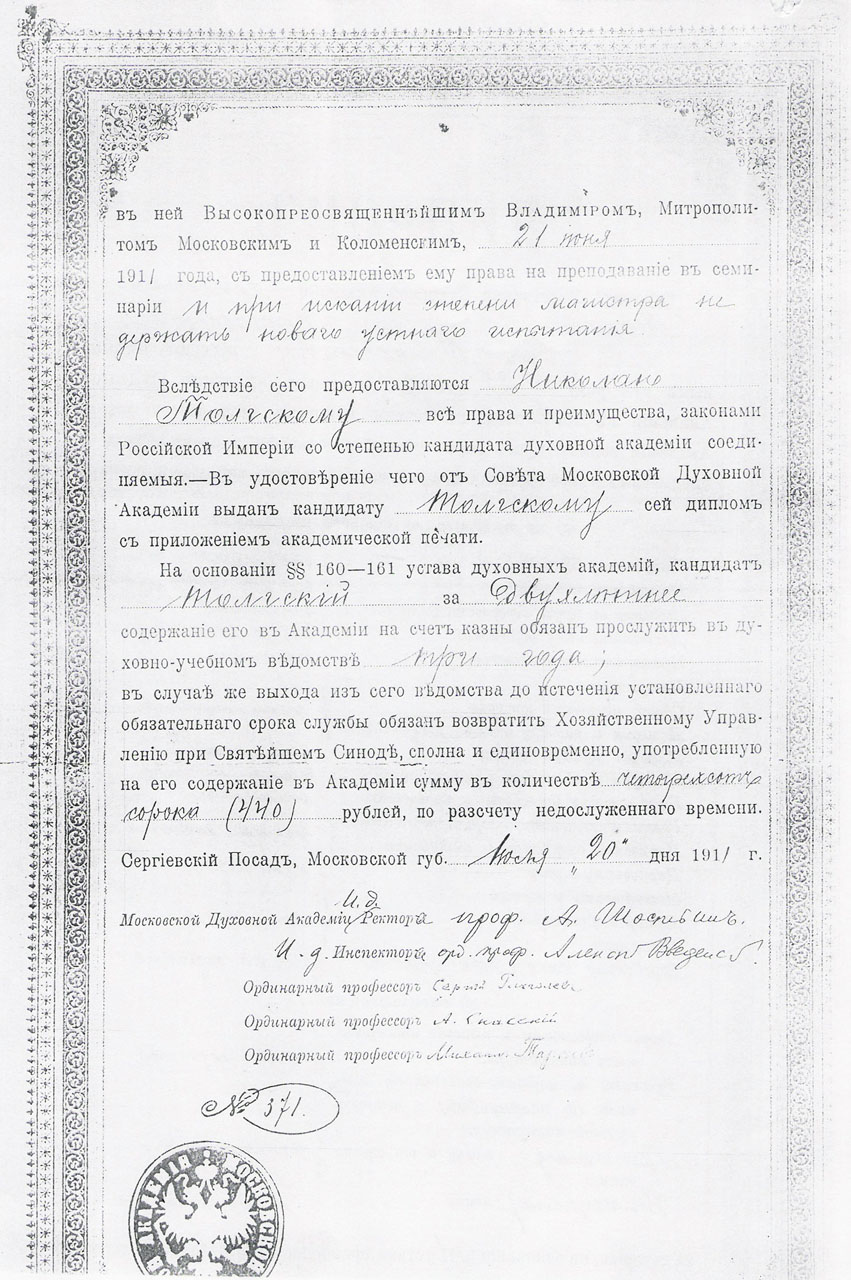 въ ней Высокопреосвященнѣйшимъ Владиміромъ, Митрополи-
томъ Московскимъ и Коломенскимъ, 21 іюня
1911 года, съ предоставленіемъ ему права на преподаваніе въ семи-
наріи и при исканіи степени магистра не
держать новаго устнаго испытанія
Вслѣдствіе сего предоставляются Николаю
Толгскому всѣ права и преимущества, законами
Россійской Имперіи со степенью кандидата духовной академіи соеди-
няемыя.—Въ удостовѣреніе чего отъ Совѣта Московской Духовной
Академіи выданъ кандидату Толгскому сей дипломъ
съ приложеніемъ академической печати.
На основаніи §§ 160—161 устава духовныхъ академій, кандидатъ
Толгскій за двухлѣтнее
содержаніе его въ Академіи на счетъ казны обязанъ прослужить въ ду-
ховно-учебномъ вѣдомствѣ три года;
въ случаѣ же выхода изъ сего вѣдомства до истеченія установленнаго
обязательнаго срока службы обязанъ возвратить Хозяйственному Управ-
ленію при Святѣйшемъ Синодѣ, сполна и единовременно, употребленную
на его содержаніе въ Академіи сумму въ количествѣ четыреста
сорока (440) рублей, по разсчету недослуженнаго времени.
Сергіевскій Посадъ, Московской губ. Іюля „20“ дня 1911 г.
И. д.
Московской Духовной Академіи Ректора проф. А.
И. д. Инспектора орд. проф. Введенс
Ординарный профессоръ Сергій Глаголевъ
Ординарный профессоръ А. Спасскій
Ординарный профессоръ Михаилъ
№ 371.
АКАДЕМІЯ МОСКОВСКОЙ